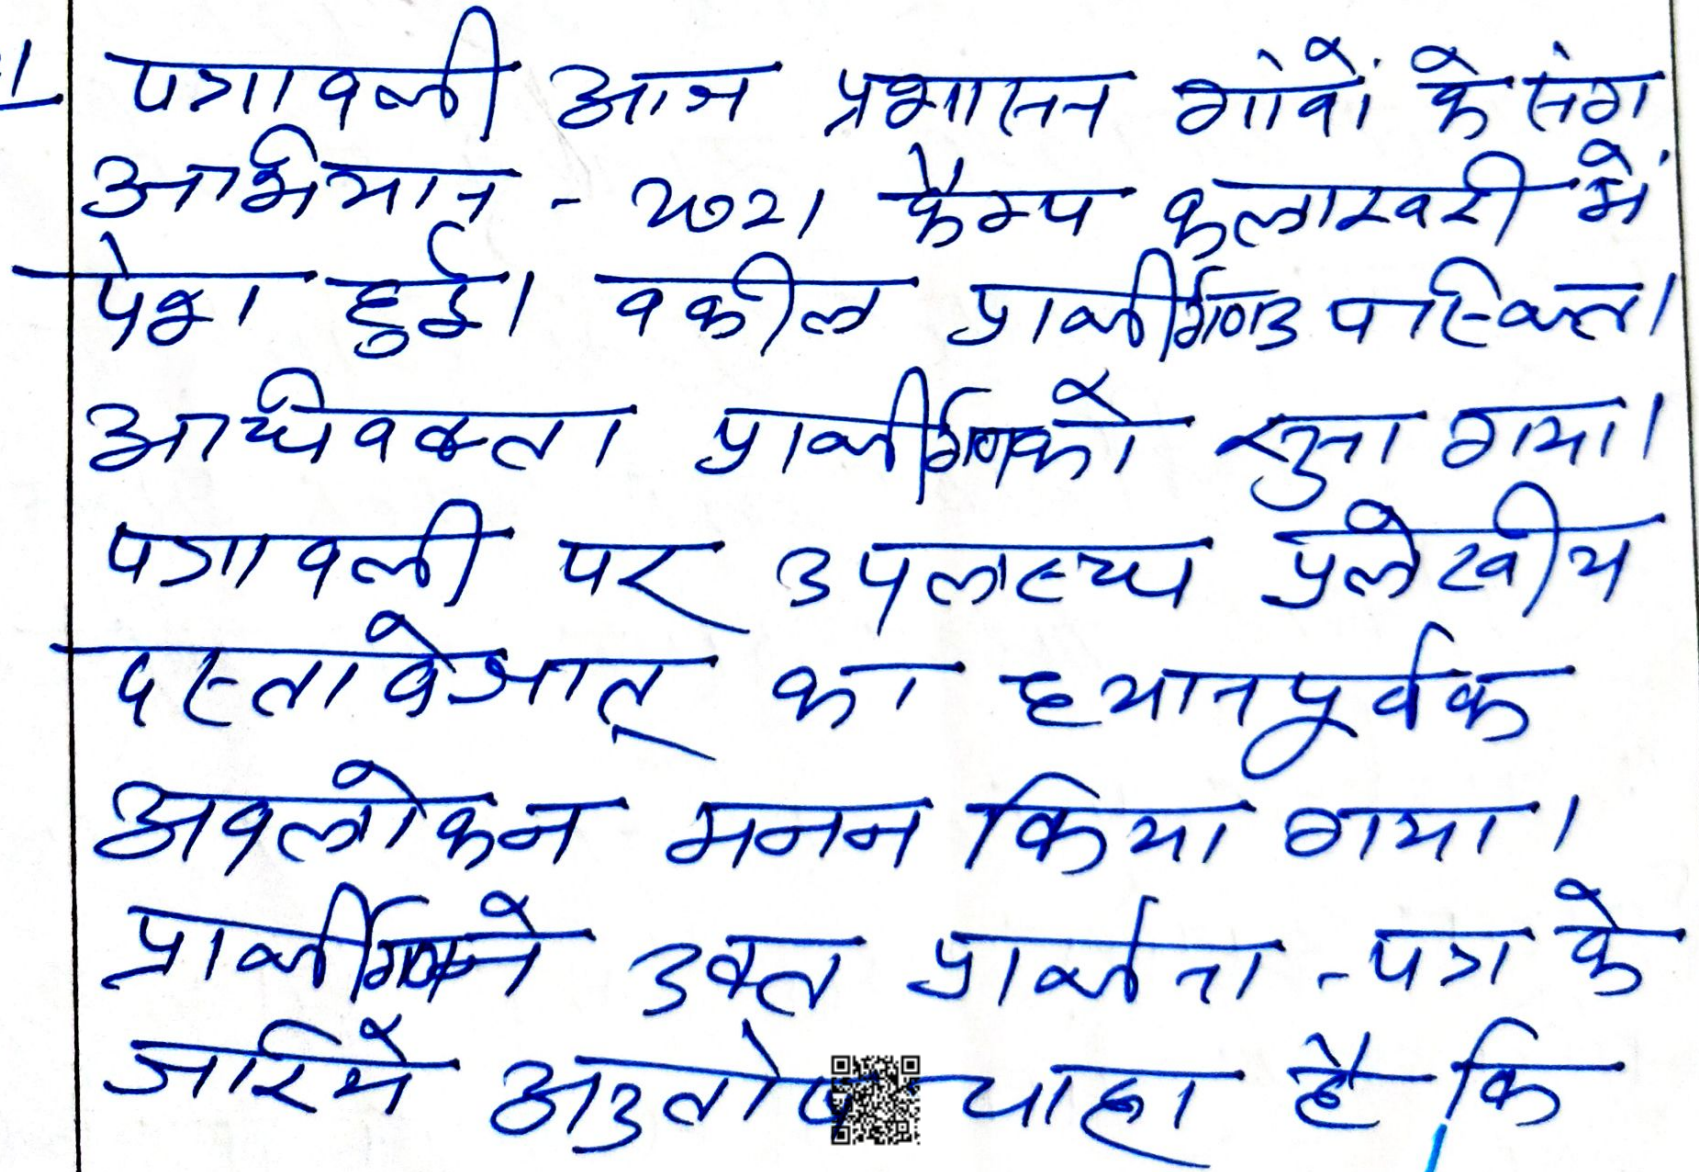 पत्रावली आज प्रशासन गांवों के संग
अभियान - 2021 कैम्प कलाखरी में
पेश हुई। वकील प्रार्थीगण उपस्थित।
अधिवक्ता प्रार्थीगण को सुना गया।
पत्रावली पर उपलब्ध प्रलेखीय
दस्तावेजात् का ध्यानपूर्वक
अवलोकन मनन किया गया।
प्रार्थीगण ने उक्त प्रार्थना-पत्र के
जरिये अनुतोष चाहा है कि